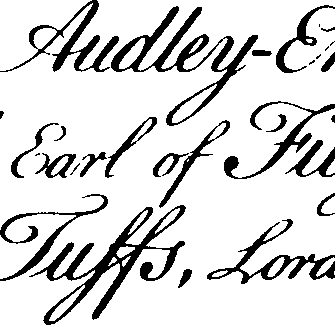 Audley-E
Earl of Fi
Tuffs, Lord